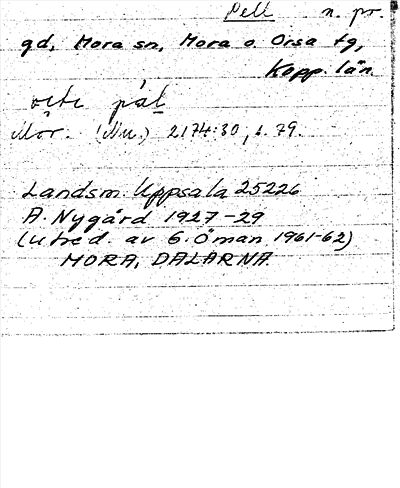 Pell n. pr.
gd, Mora sn, Mora o. Orsa tg,
Kopp. län.
Mor. (Nu.) 2174:30, s. 79.
Landsm. Uppsala 25226
A. Nygård 1927-29
(utred. av G. Öman 1961-62)
MORA, DALARNA